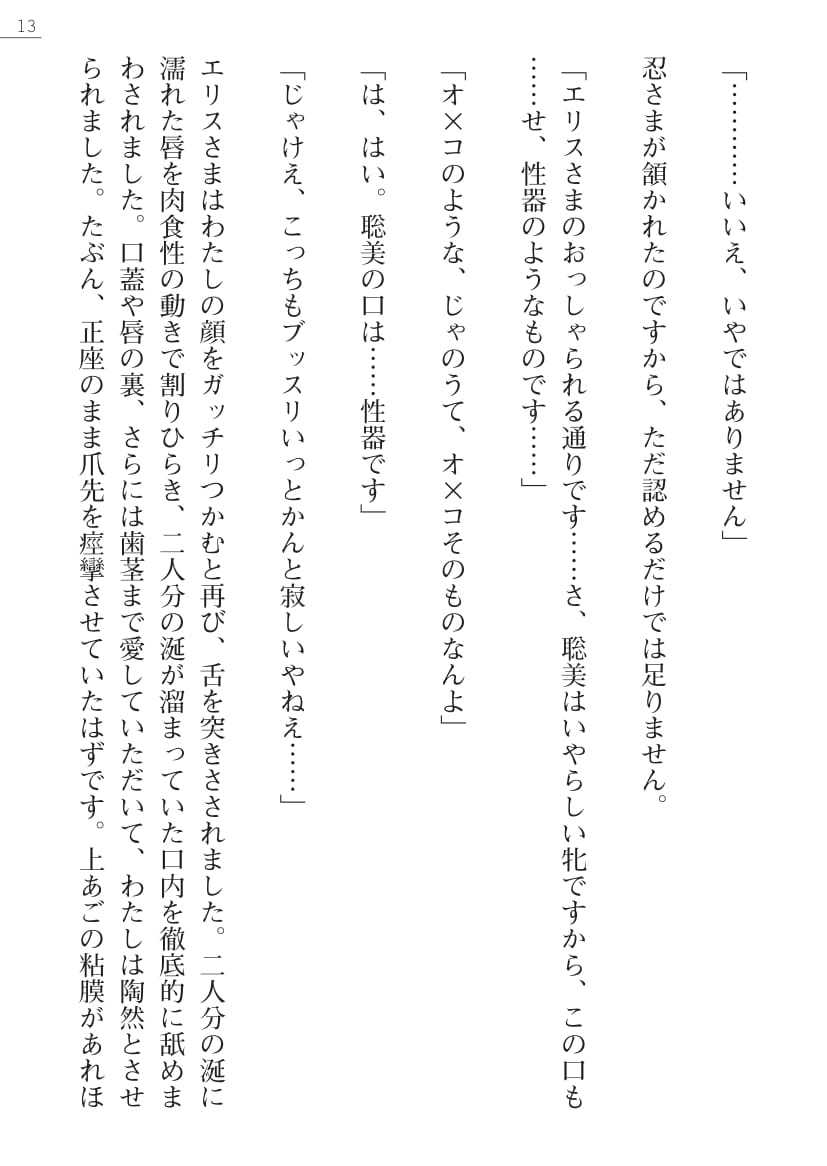 13
「…………いいえ、いやではありません」
忍さまが頷かれたのですから、ただ認めるだけでは足りません。
「エリスさまのおっしゃられる通りです……さ、聡美はいやらしい牝ですから、この口も
……せ、性器のようなものです……」
「オ×コのような、じゃのうて、オ×コそのものなんよ」
「は、はい。聡美の口は……性器です」
「じゃけえ、こっちもブッスリいっとかんと寂しいやねえ……」
エリスさまはわたしの顔をガッチリつかむと再び、舌を突きさされました。二人分の涎に
濡れた唇を肉食性の動きで割りひらき、二人分の涎が溜まっていた口内を徹底的に舐めま
わされました。口蓋や唇の裏、さらには歯茎まで愛していただいて、わたしは陶然とさせ
られました。たぶん、正座のまま爪先を痙攣させていたはずです。上あごの粘膜があれほ